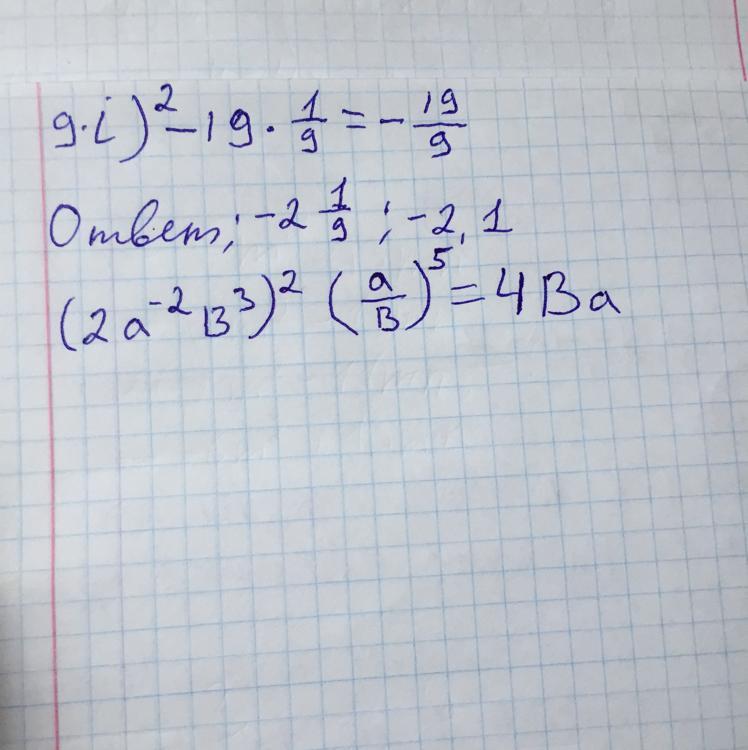 9·i)² - 19 · 1/9 = - 19/9
Ответ; -2 1/9 ; -2,1
(2a⁻²B³)² (a/B)⁵ = 4Ba